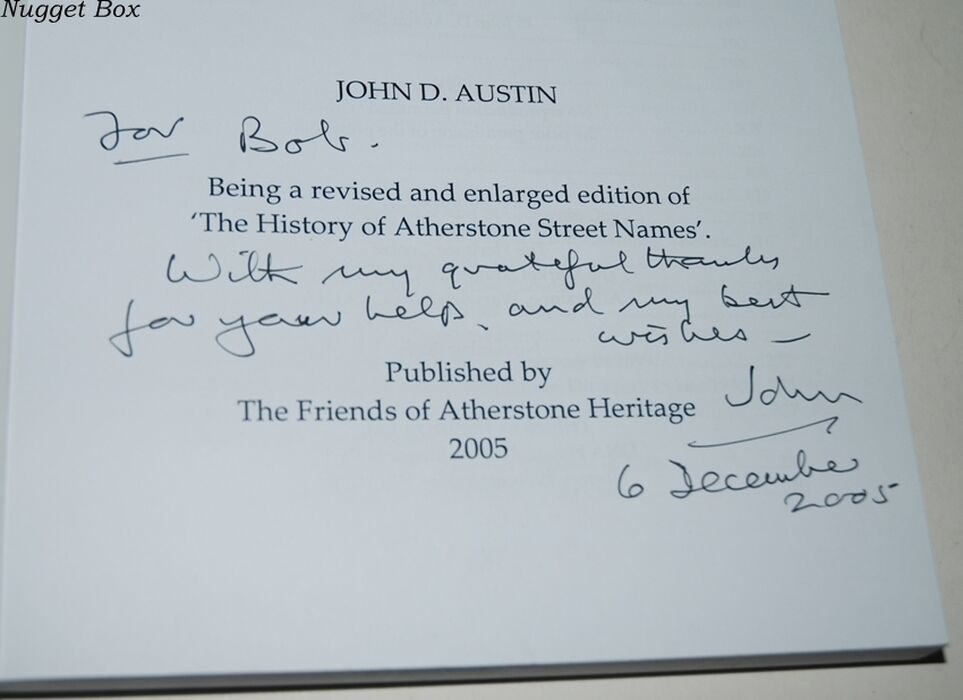 Nugget Box
JOHN D. AUSTIN
For Bob.
Being a revised and enlarged edition of
‘The History of Atherstone Street Names’.
With my grateful thanks
for your help, and my best
wishes –
Published by
The Friends of Atherstone Heritage
John
2005
6 December
2005